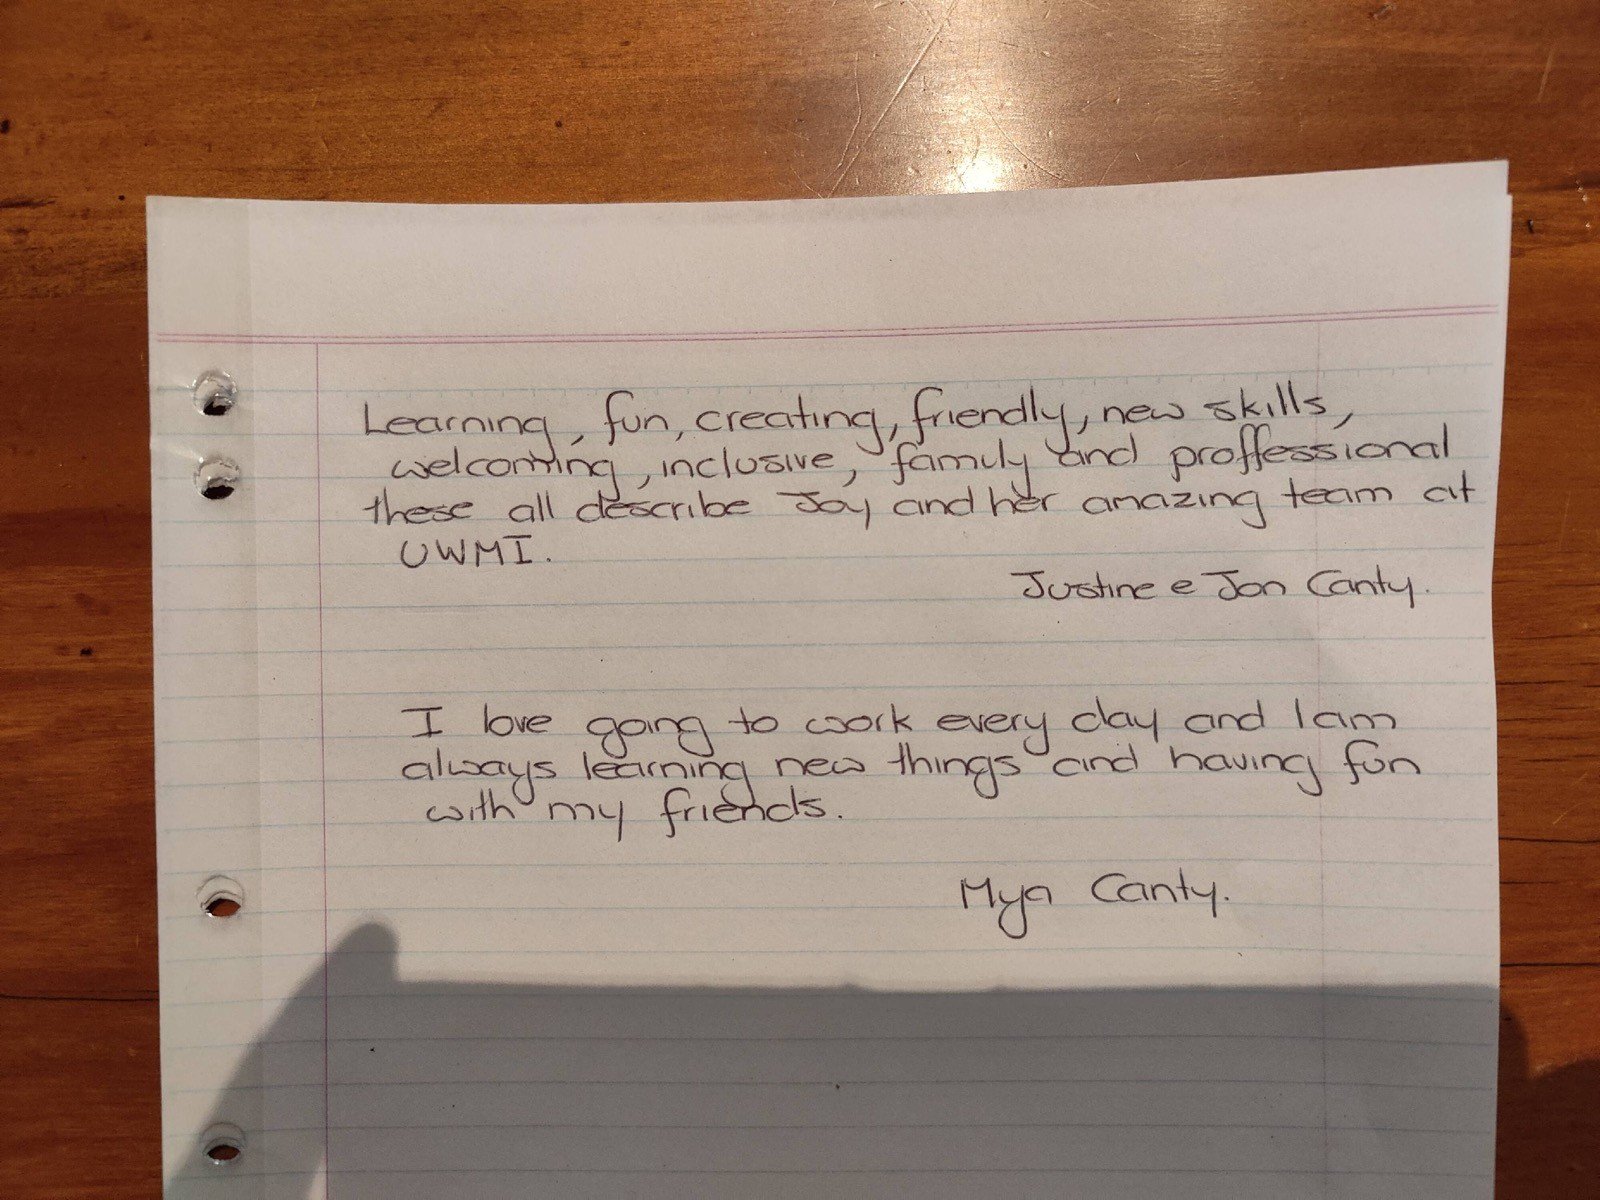 Learning, fun, creating, friendly, new skills,
welcoming, inclusive, family and proffessional
these all describe Joy and her amazing team at
UWMI.
Justine e Jon Canty.
I love going to work every day and I am
always learning new things and having fun
with my friends.
Mya Canty.